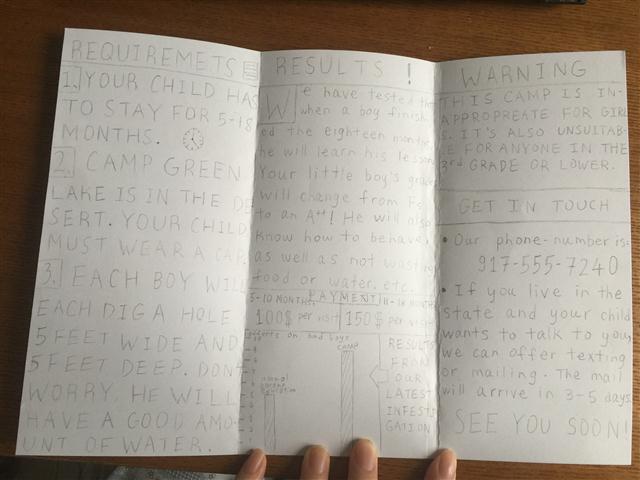 REQUIREMETS
1. YOUR CHILD HAS
TO STAY FOR 5-18
MONTHS.
2. CAMP GREEN
LAKE IS IN THE DE
SERT. YOUR CHILD
MUST WEAR A CAP.
3. EACH BOY WILL
EACH DIG A HOLE
5 FEET WIDE AND
5 FEET DEEP. DONT
WORRY, HE WILL
HAVE A GOOD AMO-
UNT OF WATER.
RESULTS!
We have tested that
when a boy finish
ed the eighteen months,
he will learn his lesson.
Your little boy's grades
will change from Fs
to an A++! He will also
know how to behave,
as well as not wasting
food or water, etc.
PAYMENT
5-10 MONTHS
11-18 MONTHS
100$ per visit
150$ per visit
effects on bad boys
normal
CAMP
RESULTS
FROM
OUR
LATEST
INFESTI
GATION
WARNING
THIS CAMP IS IN-
APPROPREATE FOR GIRL
S. IT'S ALSO UNSUITAB-
LE FOR ANYONE IN THE
3rd GRADE OR LOWER.
GET IN TOUCH
• Our phone-number is:
917-555-7240
• If you live in the
state and your child
wants to talk to you,
we can offer texting
or mailing. The mail
will arrive in 3-5 days.
SEE YOU SOON!